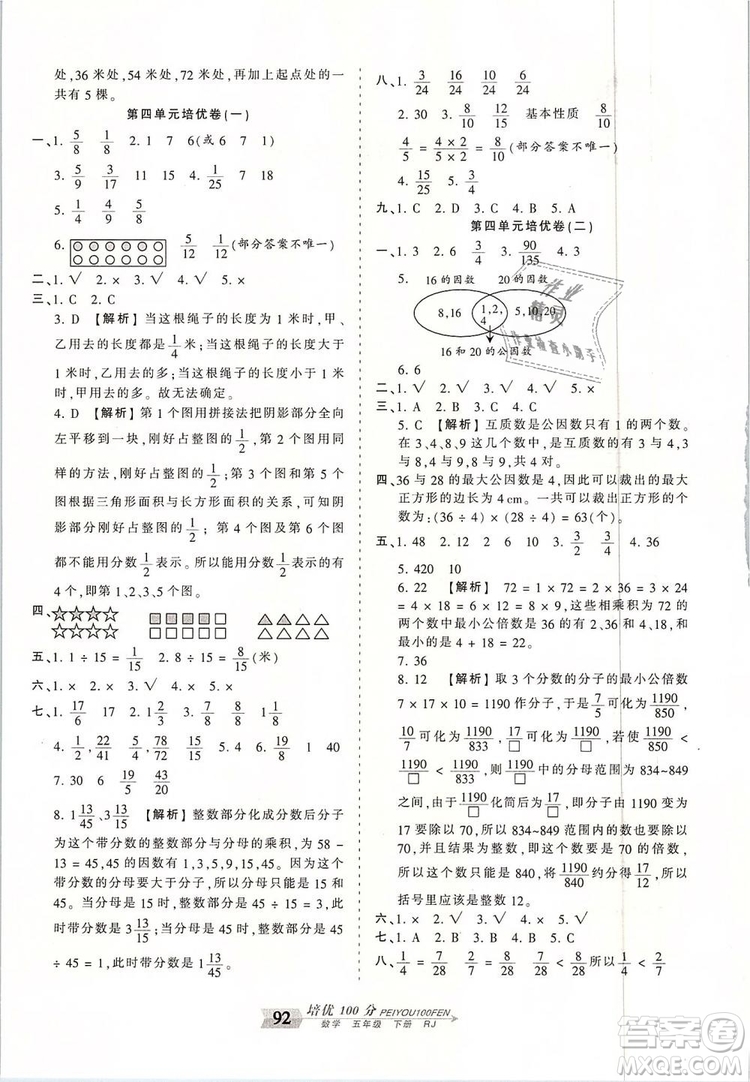 处,36 米处,54 米处,72 米处,再加上起点处的一
共有 5 棵。
第四单元培优卷(一)
一、1. 5/8 1/8 2. 1 7 6(或 6 7)
3. 5/9 3/17 4. 1/25 7 18
5. 1/4 4/9
6. 5/12 1/12 (部分答案不唯一)
二、1. √ 2. × 3. √ 4. √ 5. ×
三、1. C 2. D 3. D 4. D 5. C
3. D 【解析】当这根绳子的长度为 1 米时,甲、
乙用去的长度都是 1/4 米;当这根绳子的长度小于
1 米时,乙用去的多;当这根绳子的长度大于 1
米时,甲用去的多。故无法确定。
4. D 【解析】第 1 个图用拼接法把阴影部分向
左平移到一块,刚好占整图的 1/2,第 2 个图用同
样的方法,刚好占整图的 1/2,第 3 个图和第 5 个图
根据三角形面积与长方形面积的关系,可知阴
影部分刚好占整图的 1/2。第 4 个图,阴影部分
无法用分数 1/2 表示。所以能用分数 1/2 表示的有
4 个,即第 1,2,3,5 个图。
四、
五、1. 1 ÷ 15 = 1/15 2. 8 ÷ 15 = 8/15(米)
六、1. × 2. × 3. √ 4. ×
七、1. 17/6 17 2. 1 2/3 3. 7/8 8/8 1 1/8
4. 1/2, 22/41 5. 32/5 22/5 6. 7/8
7. 30 30 19/5 43/6
8. 1 13/45、3 13/15 【解析】整数部分化成分数后分子
为这个带分数的整数部分与分母的乘积,为 58 -
13 = 45,45 的因数有 1,3,5,9,15,45。因为这个
带分数的分母大于分子,所以分母是 15 和 45。
当分母是 15 时,整数部分是 45 ÷ 15 = 3,此时带
分数是 3 13/15;当分母是 45 时,整数部分是 45
÷ 45 = 1,此时带分数是 1 13/45。
八、1. 3/24 16/24 10/24 6/24
2. 30 3. 8/10 8/10 基本性质
4/5 = 4×2/5×2 = 8/10(部分答案不唯一)
4. 15/25 3/4
九、1. C 2. D 3. C 4. B 5. A
第四单元培优卷(二)
一、1. 3 2. 6 3. 3/4 90/135 4. 3
5. 16 的因数 20 的因数
8,16 1,2,4 5,10,20
16 和 20 的公因数
6. 6
二、1. √ 2. √ 3. √ 4. × 5. √
三、1. B 2. A 3. B 4. A 5. C
5. C 【解析】互质数是公因数只有 1 的两个数。
在 3,4,8,9 这几个数中,是互质数的有 3 与 4,3
与 8,4 与 9,8 与 9,一共 4 对。
四、36 与 28 的最大公因数是 4,所以裁出的最大
正方形的边长为 4 cm。一共可以裁出正方形的个
数为:(36 ÷ 4) × (28 ÷ 4) = 63(个)。
五、1. 48 2. 12 2 6 3. 3/2 3/4 4. 36
5. 420 10
6. 22 【解析】72 = 1×72 = 2×36 = 3×24 =
4×18 = 6×12 = 8×9,在这些相乘积为 72 的
两个数中最小公倍数是 36 的有 2、36 和 4、18,和
最小的是 4 + 18 = 22。
7. 36
8. 12 【解析】取 3 个分数的分子的最小公倍数
7×17×10 = 1190 作分子,于是 7/5 可化为 1190/850,
10/7 可化为 1190/833,17/□ 可化为 1190/□,若使 1190/850 <
1190/□ < 1190/833,则 1190/□ 中的分母范围为 834~849
之间,由于 1190/□ 化简后为 17/□,分子由 1190 变为
17 要除以 70,所以 834~849 范围内的数也要除
以 70,并且结果为整数,即这个数是 70 的倍数,
所以这个数只能是 840,将 1190/840 约分得 17/12,所以
括号里应该是整数 12。
六、1. × 2. √ 3. √ 4. √ 5. ×
七、1. A 2. B 3. B 4. B 5. C
八、1/4 = 7/28 2/7 = 8/28 因为 7/28 < 8/28 所以 1/4 < 2/7
92 培优 100 分 PEIYOU100FEN
数学 五年级 下册 RJ
作业
精灵
作业检查小助手
作业帮
MXQE.COM